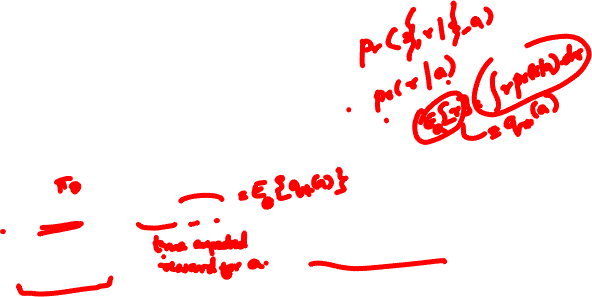 pr(s', r | s, a)
pr(r | a)
E_a[r] . ∫ r pr(r|a) dr
= q_π(a)
π_θ
= E_θ{q_π(a)}
true expected
reward for a.